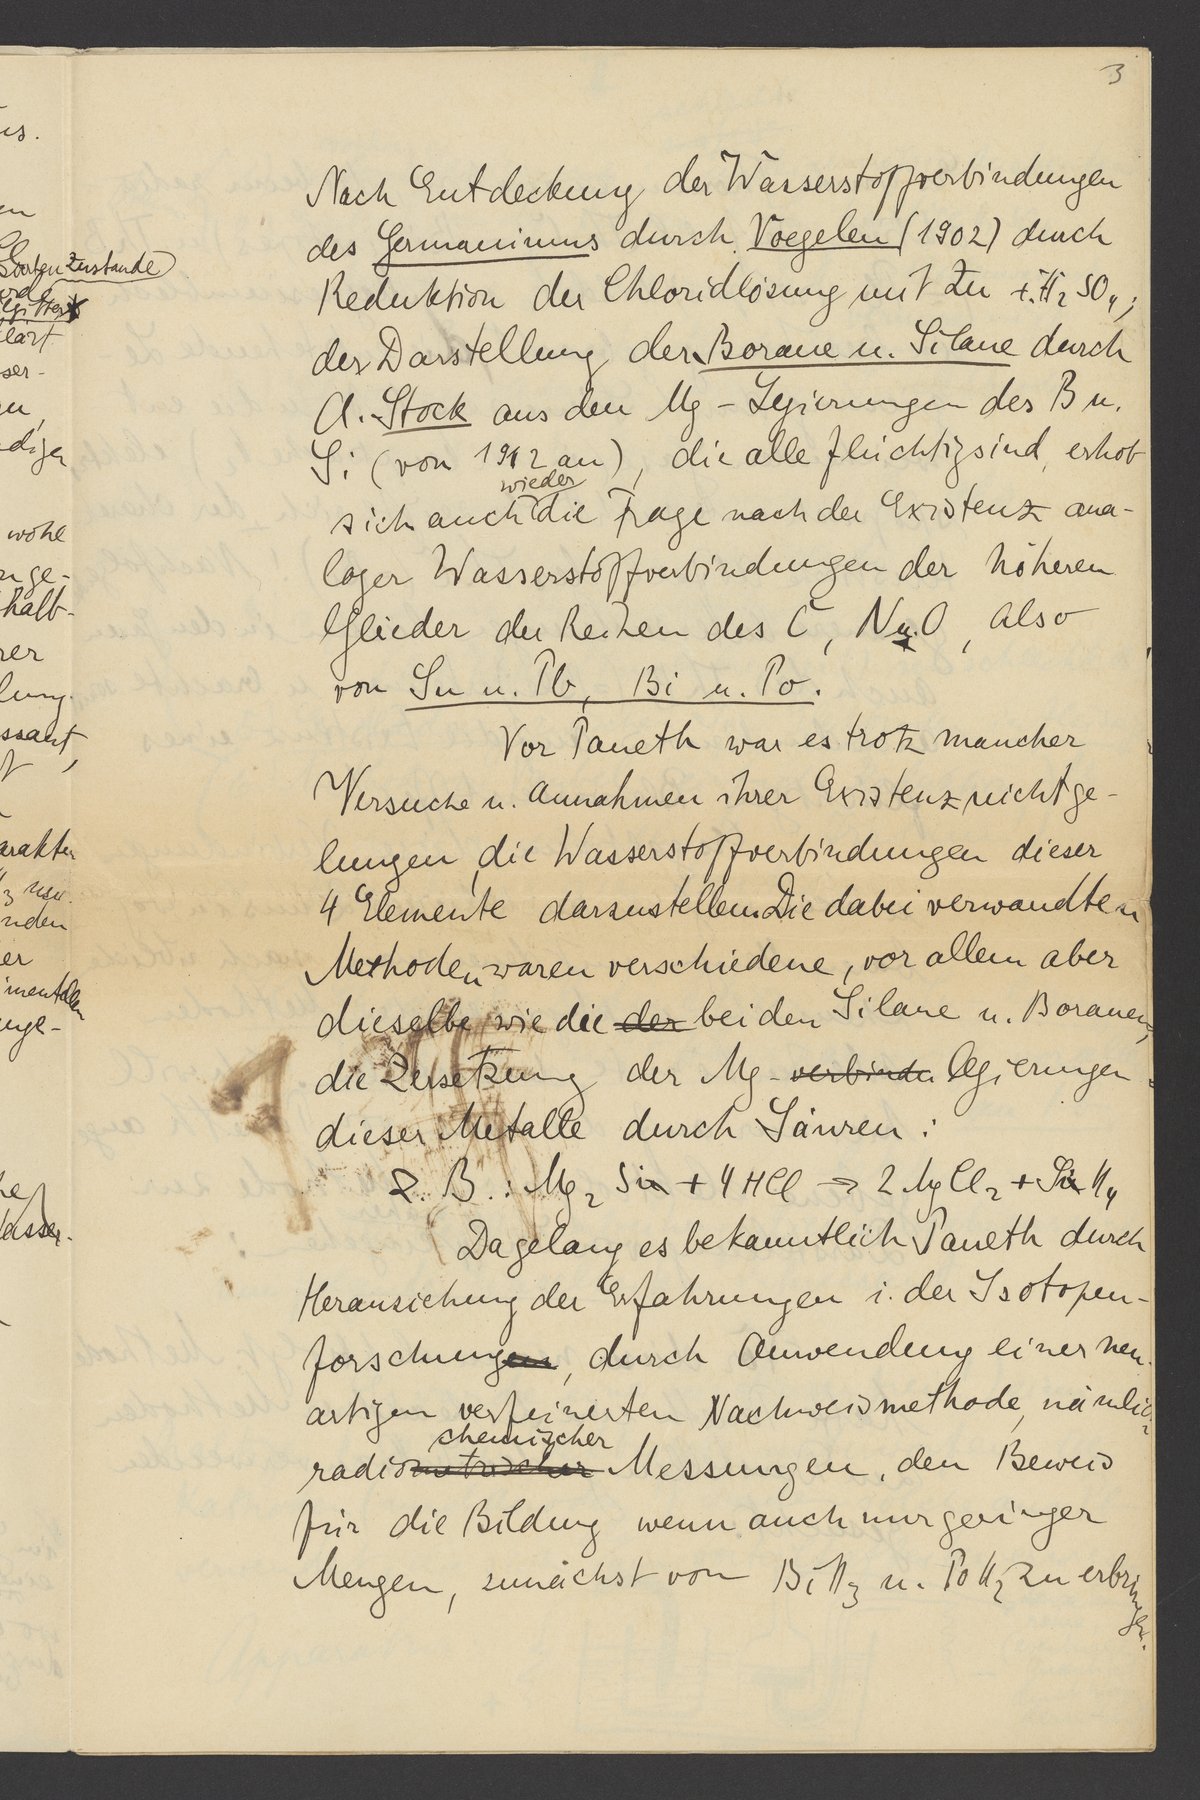 3
Nach Entdeckung der Wasserstoffverbindungen
des Germaniums durch Voegelen (1902) durch
Reduktion der Chloridlösung mit Zn + H₂SO₄;
der Darstellung der Borane u. Silane durch
A. Stock aus den Mg-Legierungen des B u.
Si (von 1912 an), die alle flüchtig sind, erhob
wieder
sich auch die Frage nach der Existenz ana-
loger Wasserstoffverbindungen der höheren
Glieder der Reihen des C, N u. O, also
von Sn u. Pb, Bi u. Po.
Vor Paneth war es trotz mancher
Versuche u. Annahmen ihrer Existenz nicht ge-
lungen, die Wasserstoffverbindungen dieser
4 Elemente darzustellen. Die dabei verwandten
Methoden waren verschiedene, vor allem aber
dieselbe wie die der bei den Silane u. Boranen,
die Zersetzung der Mg-verbindu legierungen
dieser Metalle durch Säuren:
z. B.: Mg₂ Sn + 4 HCl → 2 MgCl₂ + Sn H₄
Da gelang es bekanntlich Paneth durch
Heranziehung der Erfahrungen i. der Isotopen-
forschungen, durch Anwendung einer neu-
artigen verfeinerten Nachweismethode, nämlich
chemischer
radiometrischer Messungen, den Beweis
für die Bildung wenn auch nur geringer
Mengen, zunächst von BiH₃ u. PoH₂ zu erbringen.